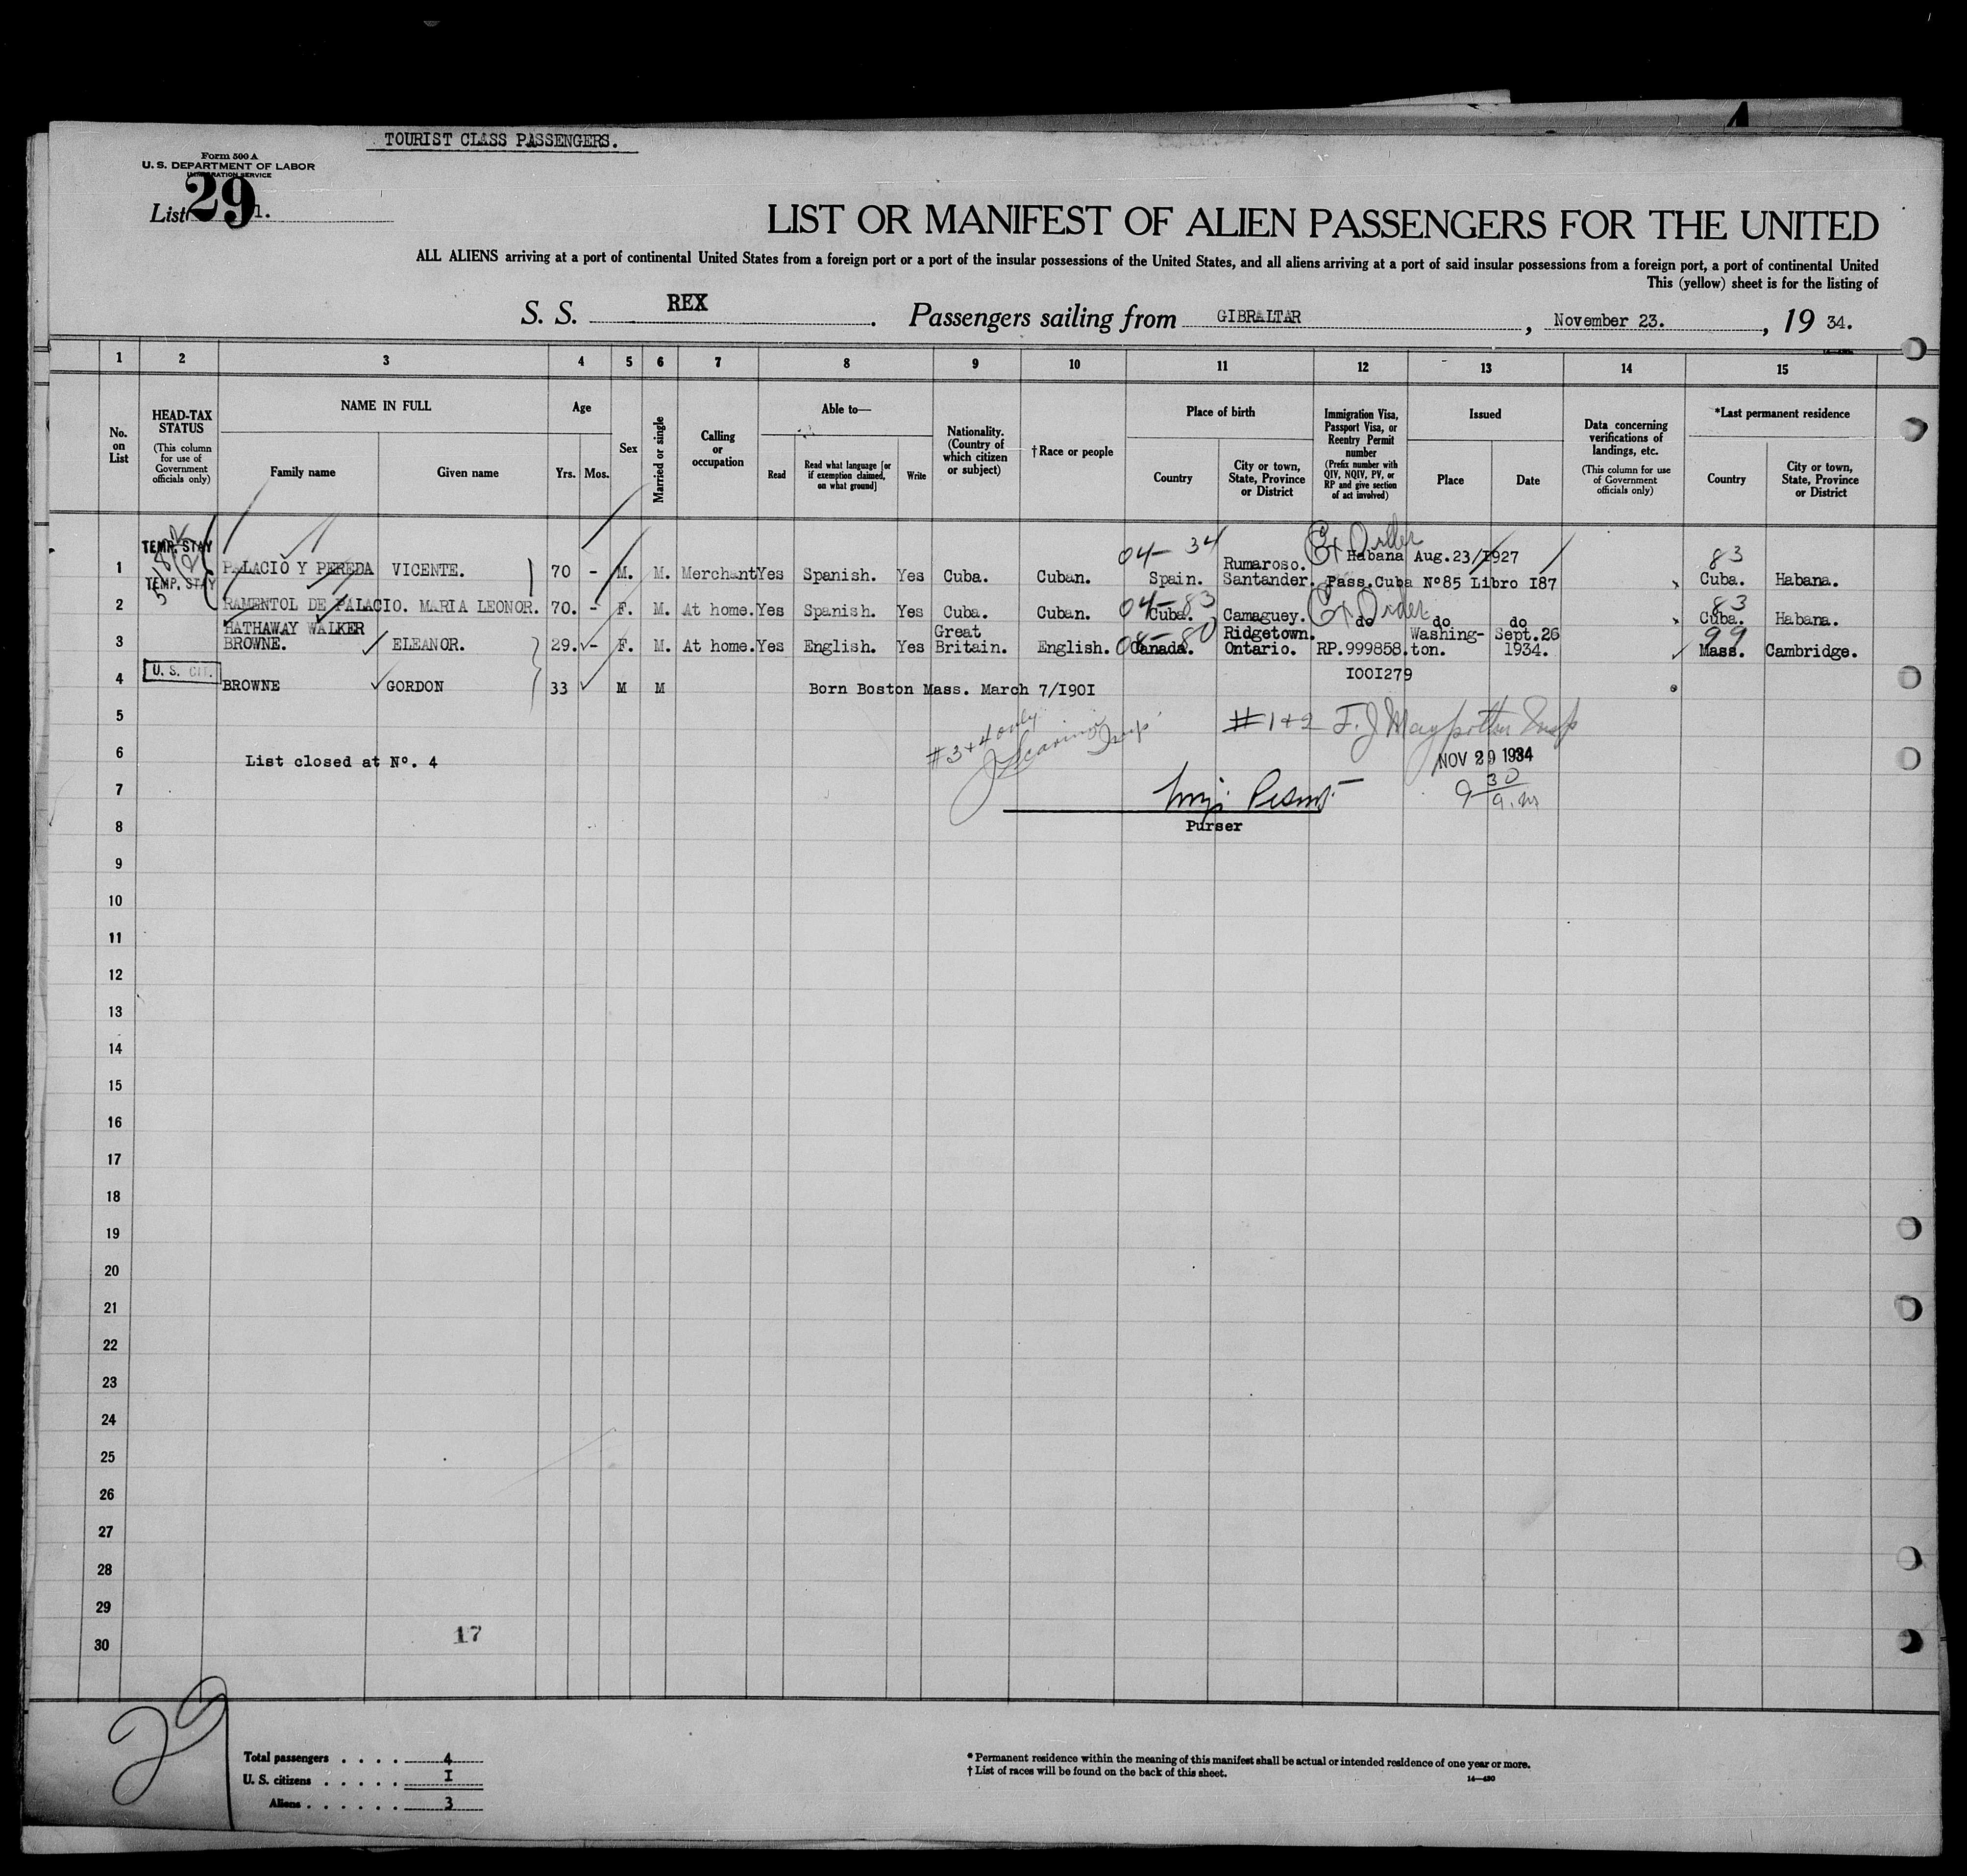 TOURIST CLASS PASSENGERS.
Form 500 A
U. S. DEPARTMENT OF LABOR
IMMIGRATION SERVICE
List 29 1.
LIST OR MANIFEST OF ALIEN PASSENGERS FOR THE UNITED
ALL ALIENS arriving at a port of continental United States from a foreign port or a port of the insular possessions of the United States, and all aliens arriving at a port of said insular possessions from a foreign port, a port of continental United
This (yellow) sheet is for the listing of
S. S. REX. Passengers sailing from GIBRALTAR, November 23., 19 34.
1 2 3 4 5 6 7 8 9 10 11 12 13 14 15
No. on List
HEAD-TAX STATUS
(This column for use of Government officials only)
NAME IN FULL
Family name Given name
Age
Yrs. Mos.
Sex
Married or single
Calling or occupation
Able to—
Read
Read what language [or if exemption claimed, on what ground]
Write
Nationality. (Country of which citizen or subject)
†Race or people
Place of birth
Country
City or town, State, Province or District
Immigration Visa, Passport Visa, or Reentry Permit number
(Prefix number with QIV, NQIV, PV, or RP and give section of act involved)
Issued
Place Date
Data concerning verifications of landings, etc.
(This column for use of Government officials only)
*Last permanent residence
Country
City or town, State, Province or District
TEMP. STAY
04- 34 Ex Order
Rumaroso. Habana Aug.23/1927 83
1 PALACIO Y PEREDA VICENTE. 70 - M. M. Merchant Yes Spanish. Yes Cuba. Cuban. Spain. Santander. Pass.Cuba Nº85 Libro I87 Cuba. Habana.
TEMP. STAY
04-83 Ex Order 83
2 RAMENTOL DE PALACIO. MARIA LEONOR. 70. - F. M. At home. Yes Spanish. Yes Cuba. Cuban. Cuba. Camaguey. do do do Cuba. Habana.
HATHAWAY WALKER Great 08-80 Ridgetown. Washing- Sept.26 99
3 BROWNE. ELEANOR. 29. - F. M. At home. Yes English. Yes Britain. English. Canada. Ontario. RP.999858. ton. 1934. Mass. Cambridge.
U. S. CIT. I00I279
4 BROWNE GORDON 33 M M Born Boston Mass. March 7/I90I
5
#3+4 only
#1+2 F. J.
6 List closed at Nº. 4
NOV 29 1934
7
9 30 a.m
8 Purser
9
10
11
12
13
14
15
16
17
18
19
20
21
22
23
24
25
26
27
28
29
30
17
29
Total passengers . . . . 4
U. S. citizens . . . . . I
Aliens . . . . . . 3
* Permanent residence within the meaning of this manifest shall be actual or intended residence of one year or more.
† List of races will be found on the back of this sheet.
14—430